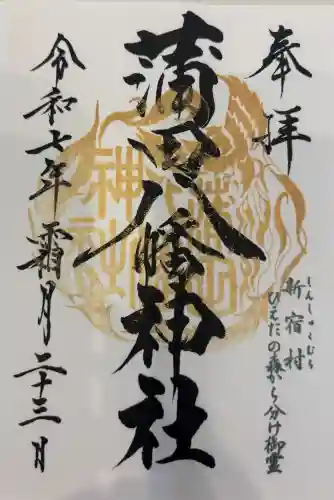 奉拝
新宿村
しんしゅくむら
ひえだの森から分け御霊
蒲田八幡神社
令和七年霜月二十三日